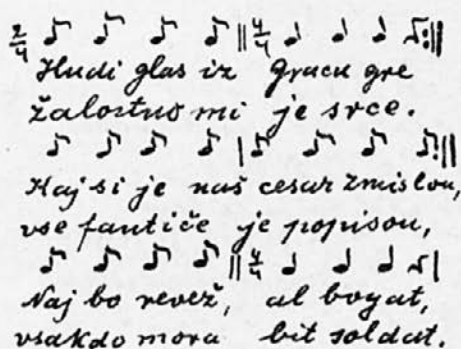 2/4 4/4
Hudi glas iz Gracu gre
žalostno mi je srce.
Kaj si je naš cesar zmislou,
vse fantiče je popisou,
4/4
Naj bo revež, al bogat,
vsakdo mora bit soldat.